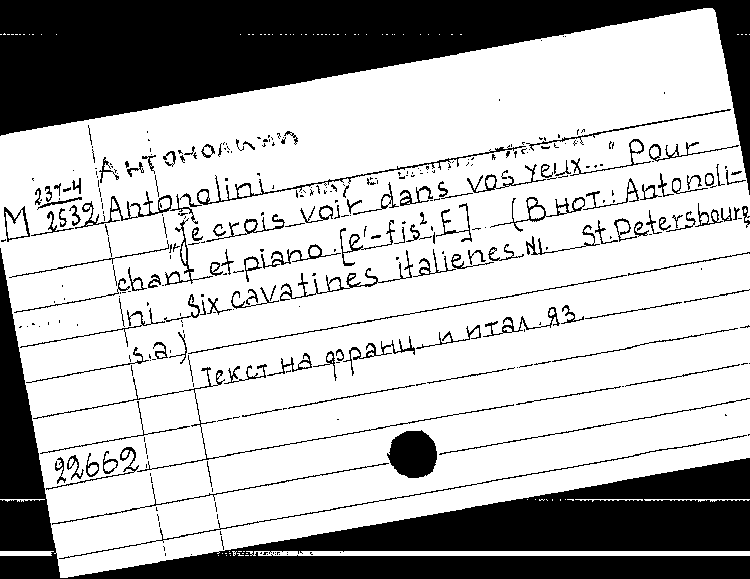 Антонолини
М 237-4/2532 Antonolini.
"Je crois voir dans vos yeux..." Pour
chant et piano. [e'-fis², E] (В нот.: Antonoli-
ni. Six cavatines italienes N1. St. Petersbourg,
s.a.)
Текст на франц. и итал. яз.
22662